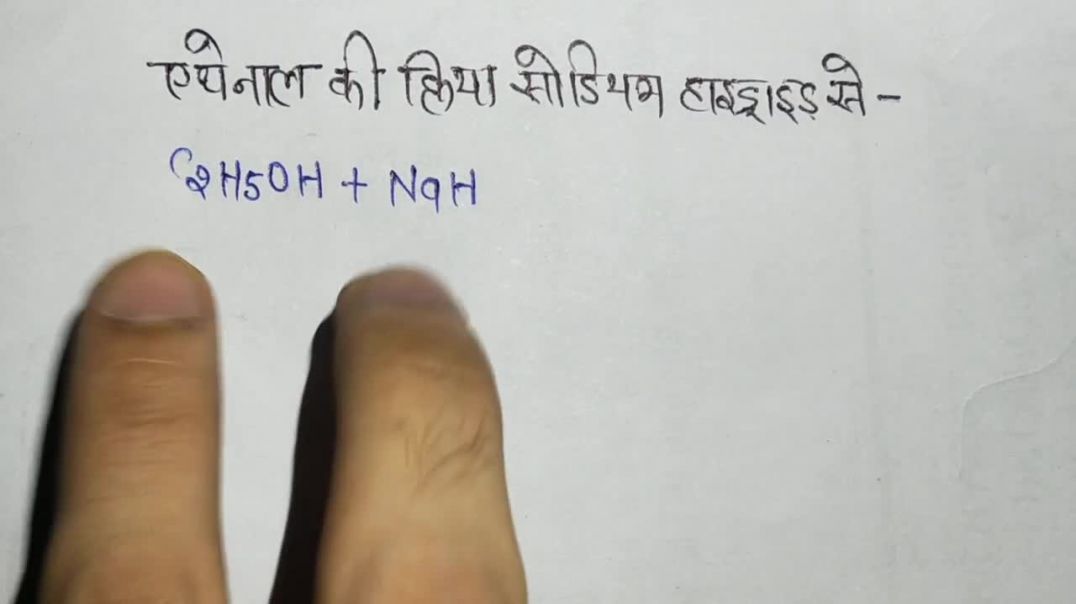 एथेनाल की क्रिया सोडियम हाइड्राइड से -
C2H5OH + NaH